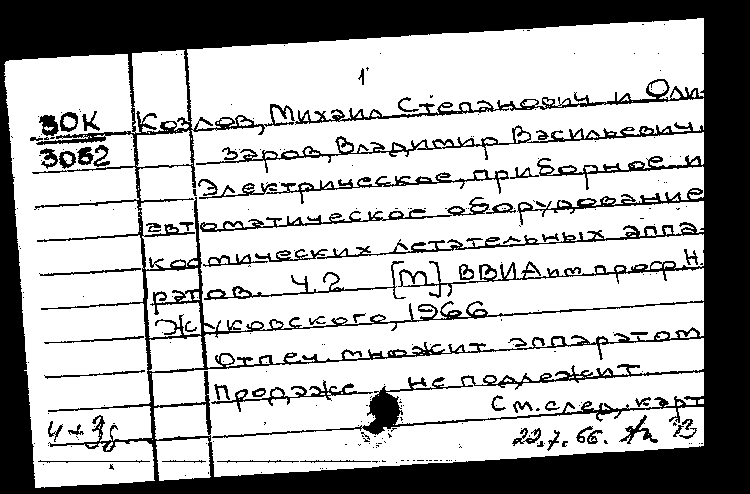 1
30К Козлов, Михаил Степанович и Оли-
3052 заров, Владимир Васильевич.
Электрическое, приборное и
автоматическое оборудование
космических летательных аппа-
ратов. Ч.2 [М], ВВИА им проф. Н.
Жуковского, 1966.
Отпеч. множит аппаратом
Продаже не подлежит.
См. след. карт
4 + 
22.7.66. 33